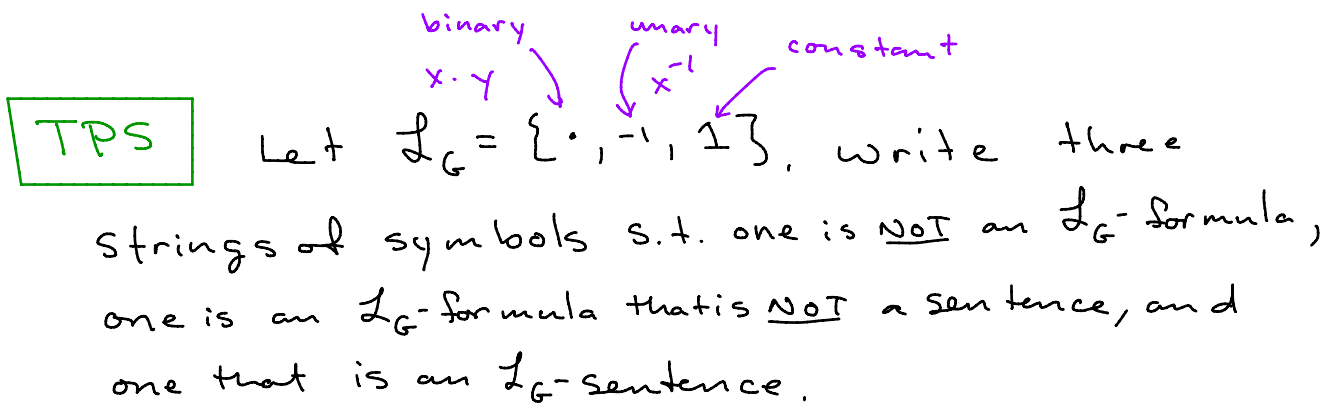 binary unary constant
x · y x⁻¹
TPS Let ℒ_G = {·, ⁻¹, 1}. Write three
strings of symbols s.t. one is NOT an ℒ_G-formula,
one is an ℒ_G-formula that is NOT a sentence, and
one that is an ℒ_G-sentence.